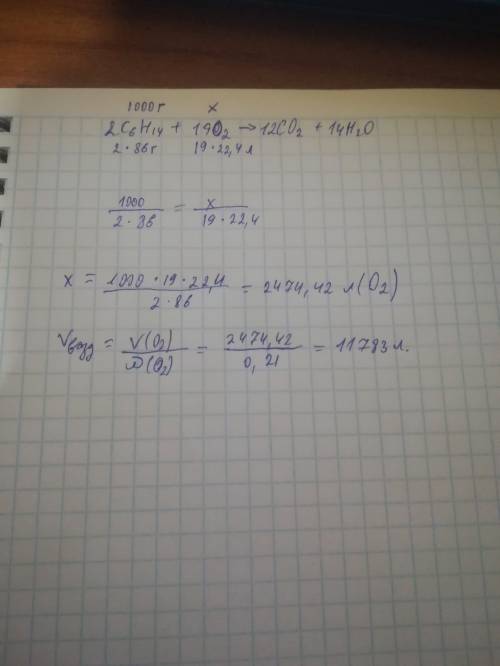 1000г x
2C₆H₁₄ + 19O₂ → 12CO₂ + 14H₂O
2·86г 19·22,4л
1000/2·86 = x/19·22,4
x = 1000·19·22,4/2·86 = 2474,42 л (O₂)
Vвозд = V(O₂)/φ(O₂) = 2474,42/0,21 = 11783 л.